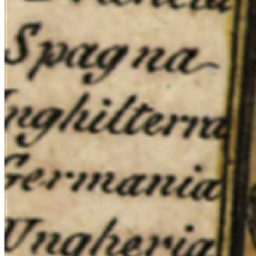 Spagna
Inghilterra
Germania
Ungheria